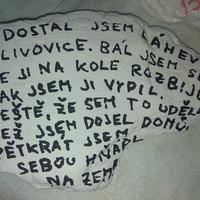 DOSTAL JSEM LÁHEV
LIVOVICE. BÁL JSEM SE
E JI NA KOLE ROZBIJU
AK JSEM JI VYPIL.
EŠTĚ, ŽE SEM TO UDĚLA
EŽ JSEM DOJEL DOMŮ,
PĚTKRÁT JSEM
SEBOU HŇÁPL
NA ZEM!